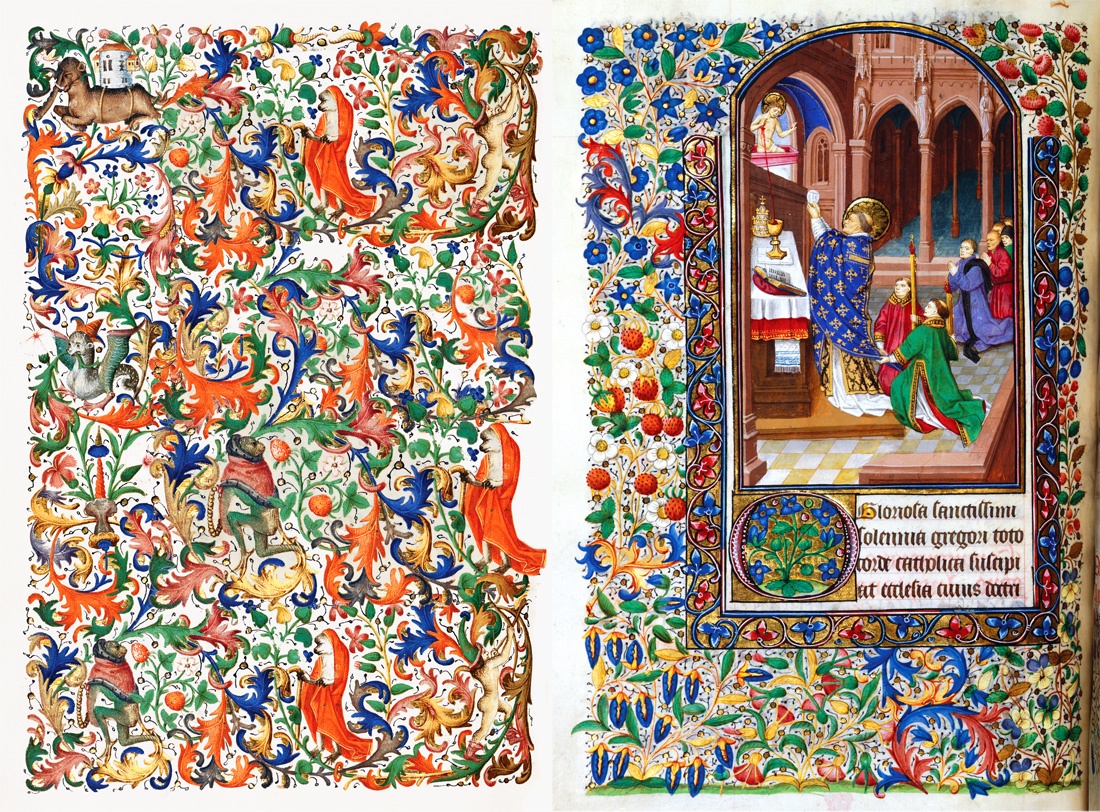 O Gloriosa sanctissimi
solemnia gregori toto
corde catholica suscipi
at ecclesia cuius doctri